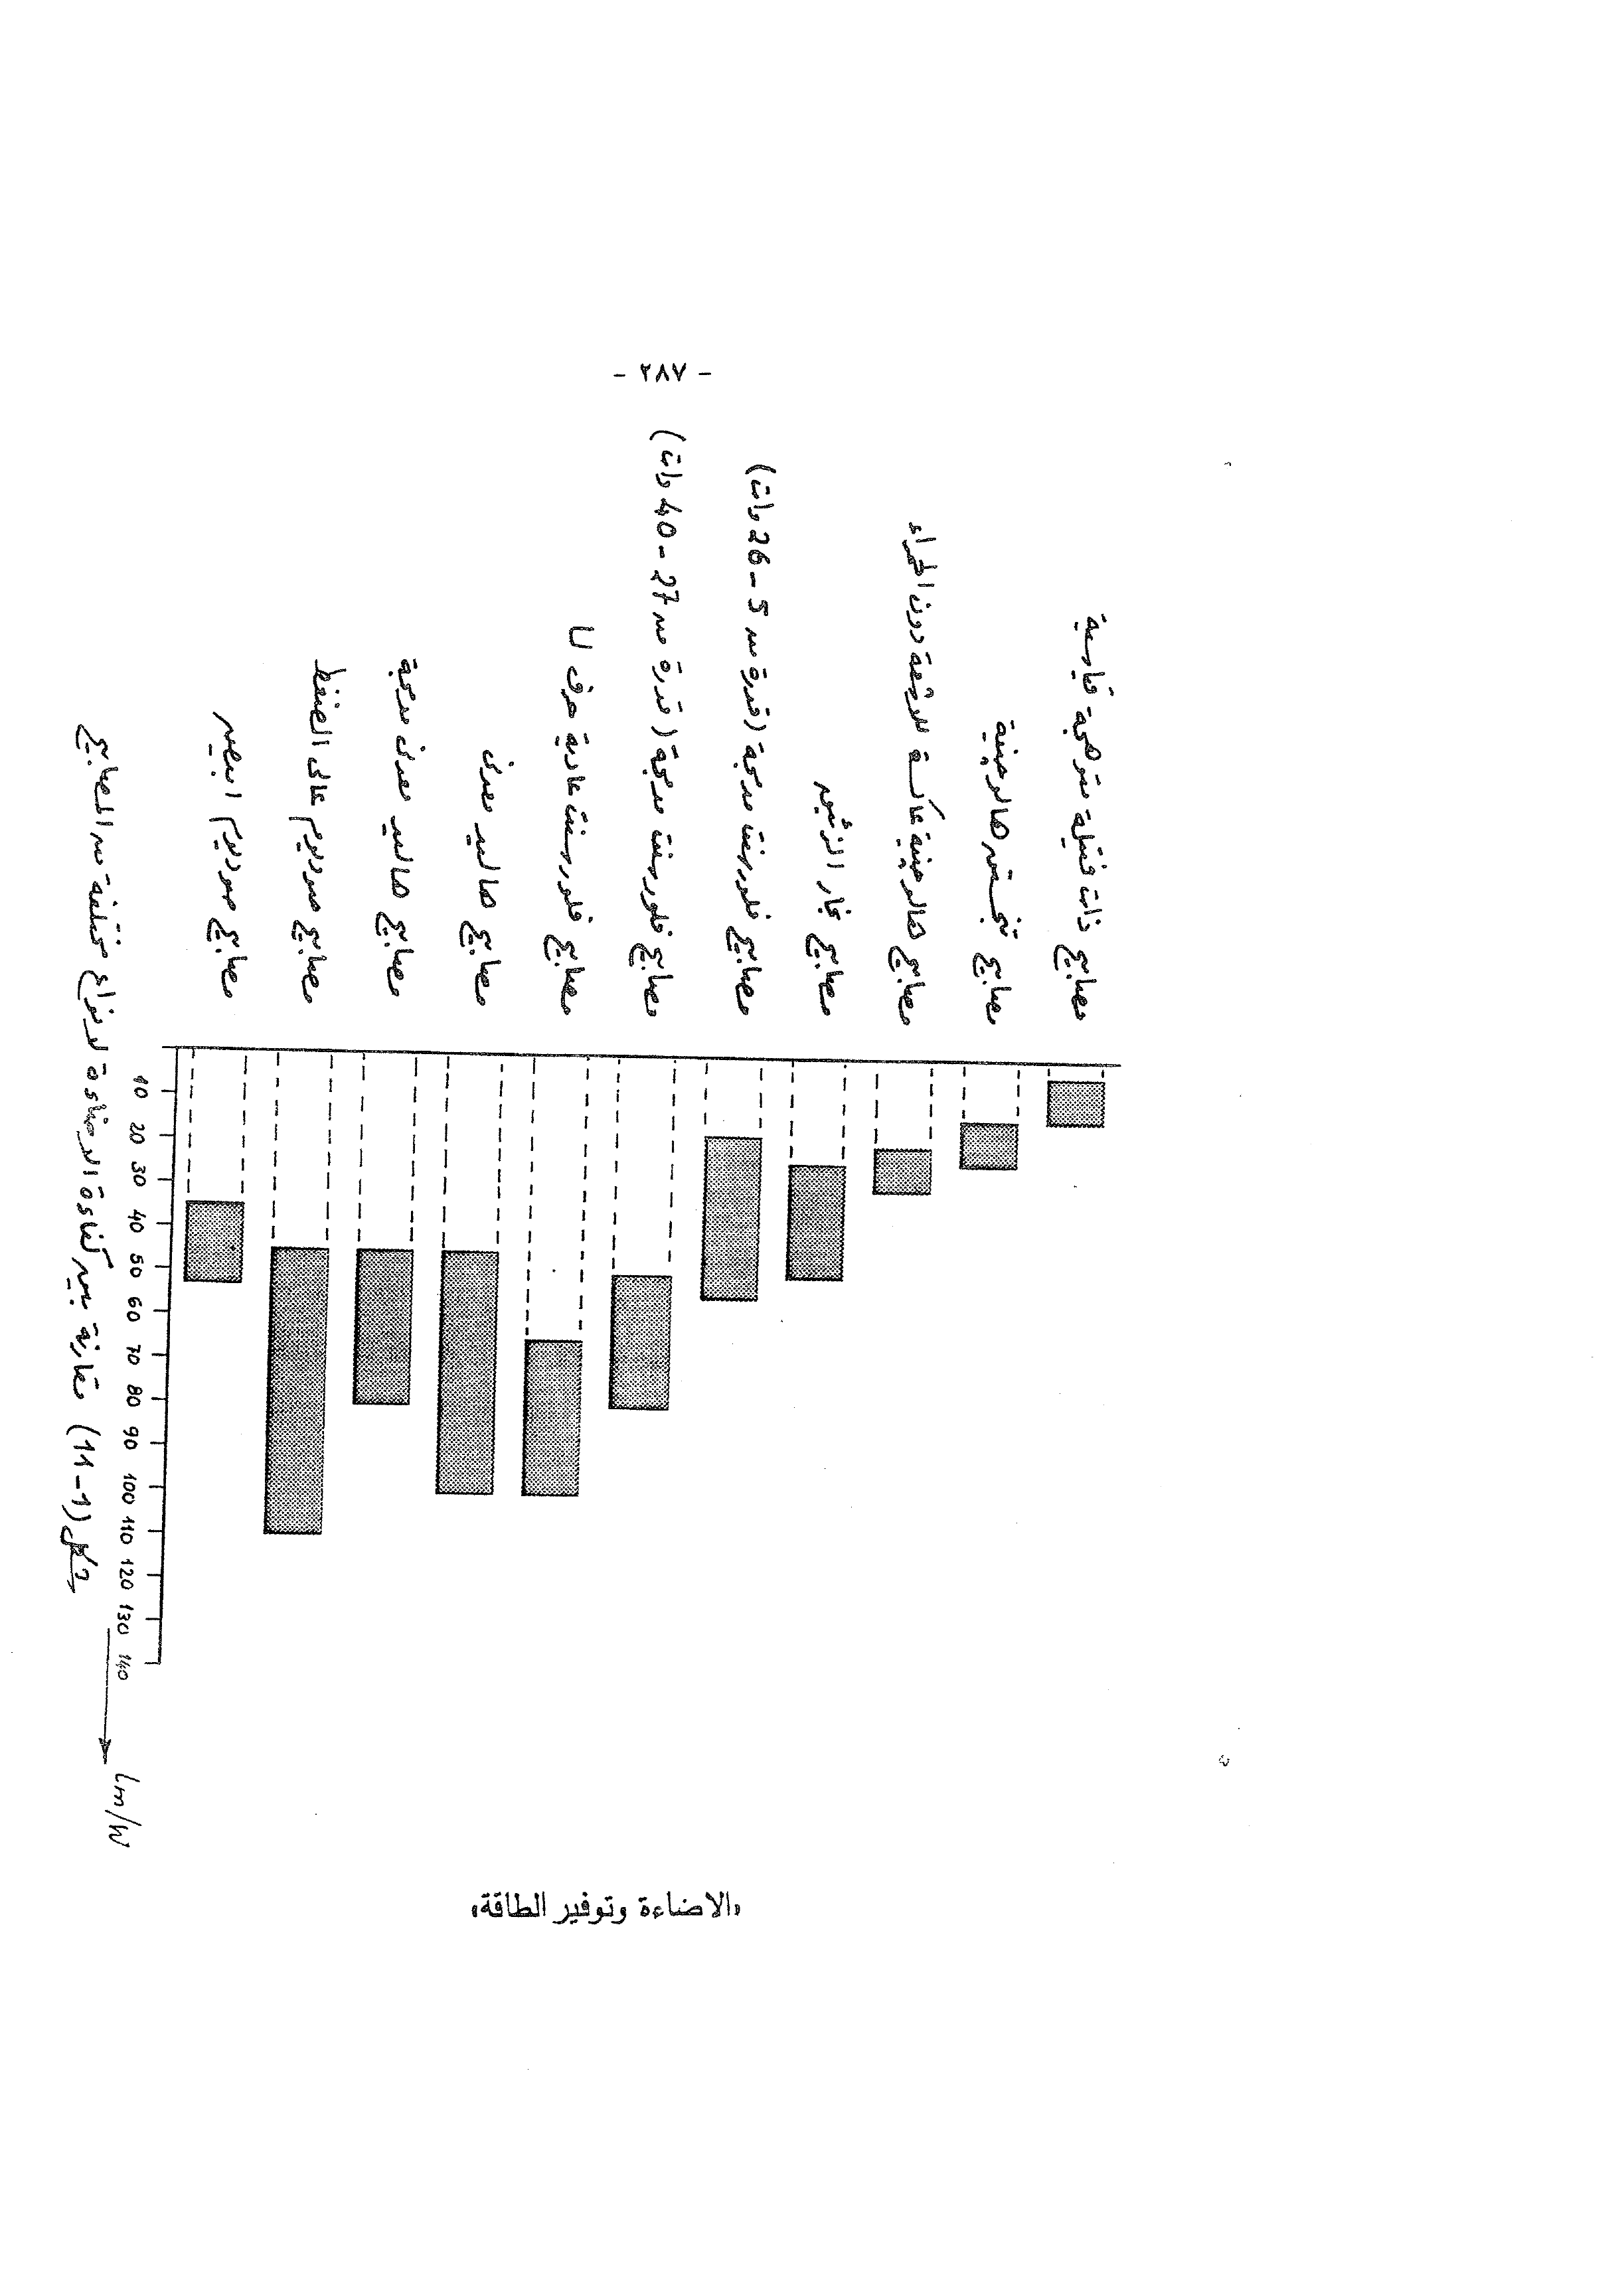 - ٢٨٧ -
مصابيح ذات فتيلة متوهجة قياسية
مصابيح تنجستن هالوجينية
مصابيح هالوجينية عاكسة للأشعة دون الحمراء
مصابيح بخار الزئبق
مصابيح فلورسنت مدمجة (قدرة من 5 - 26 وات)
مصابيح فلورسنت مدمجة (قدرة من 27 - 40 وات)
مصابيح فلورسنت عادية حرف U
مصابيح هاليد معدنى
مصابيح هاليد معدنى مدمجة
مصابيح صوديوم عالى الضغط
مصابيح صوديوم ابيض
10 20 30 40 50 60 70 80 90 100 110 120 130 140
Lm/W
شكل (1-11) مقارنة بين كفاءة الاضاءة لانواع مختلفة من المصابيح
«الاضاءة وتوفير الطاقة»